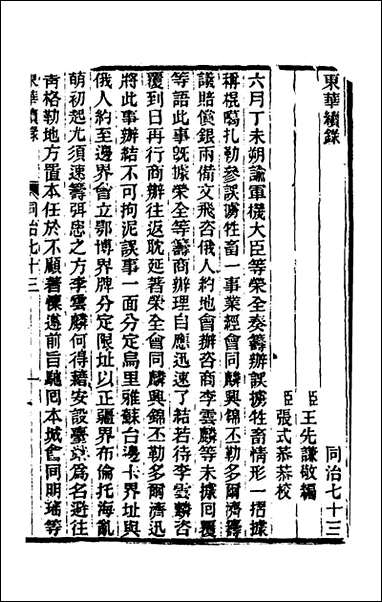 東華續錄 同治七十三
臣王先謙敬編
臣張式恭恭校
六月丁未朔諭軍機大臣等榮全奏籌辦誤擄牲畜情形一摺據
稱棍噶扎勒參誤擄牲畜一事業經會同麟興錦丕勒多爾濟籌
議賠償銀兩備文飛咨俄人約地會辦咨商李雲麟等未據回覆
等語此事既據榮全等籌商辦理自應迅速了結若待李雲麟咨
覆到日再行商辦往返耽延著榮全會同麟興錦丕勒多爾濟迅
將此事辦結不可拘泥誤事一面分定烏里雅蘇台邊卡界址與
俄人約至邊界會立鄂博界牌分定限址以正疆界布倫托海亂
萌初起尤須速籌弭患之方李雲麟何得藉安設臺站為名避往
靑格勒地方置本任於不顧著懍遵前旨馳回本城會同明瑤等
東華續錄 同治七十三 一